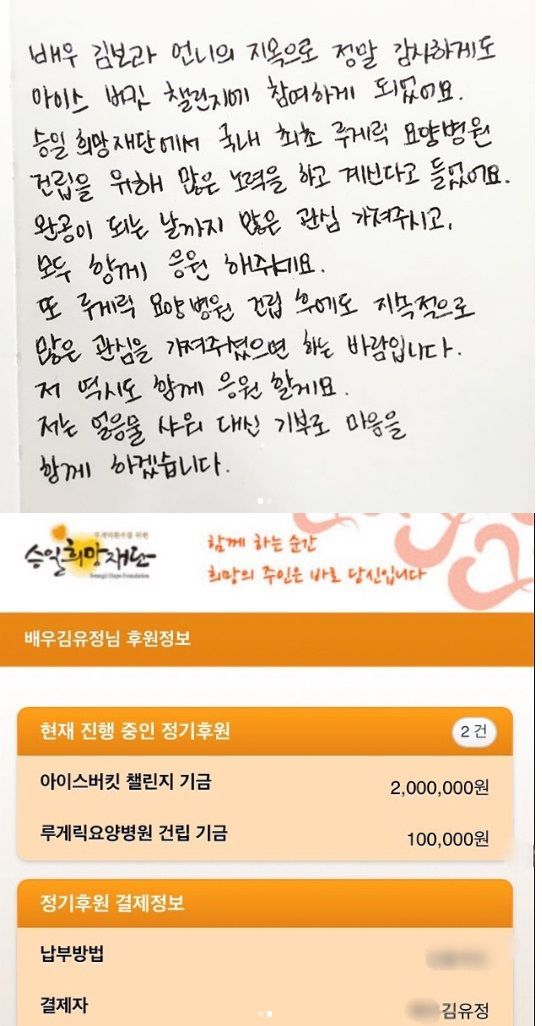 배우 김보라 언니의 지목으로 정말 감사하게도
아이스 버킷 챌린지에 참여하게 되었어요.
승일 희망재단에서 국내 최초 루게릭 요양병원
건립을 위해 많은 노력을 하고 계신다고 들었어요.
완공이 되는 날까지 많은 관심 가져주시고,
모두 함께 응원 해주세요.
또 루게릭 요양병원 건립 후에도 지속적으로
많은 관심을 가져주셨으면 하는 바람입니다.
저 역시도 함께 응원 할게요.
저는 얼음물 샤워 대신 기부로 마음을
함께 하겠습니다.
루게릭환우를 위한
승일희망재단
Seungil Hope Foundation
함께 하는 순간
희망의 주인은 바로 당신입니다
배우김유정님 후원정보
현재 진행 중인 정기후원
2 건
아이스버킷 챌린지 기금
2,000,000원
루게릭요양병원 건립 기금
100,000원
정기후원 결제정보
납부방법
결제자
김유정